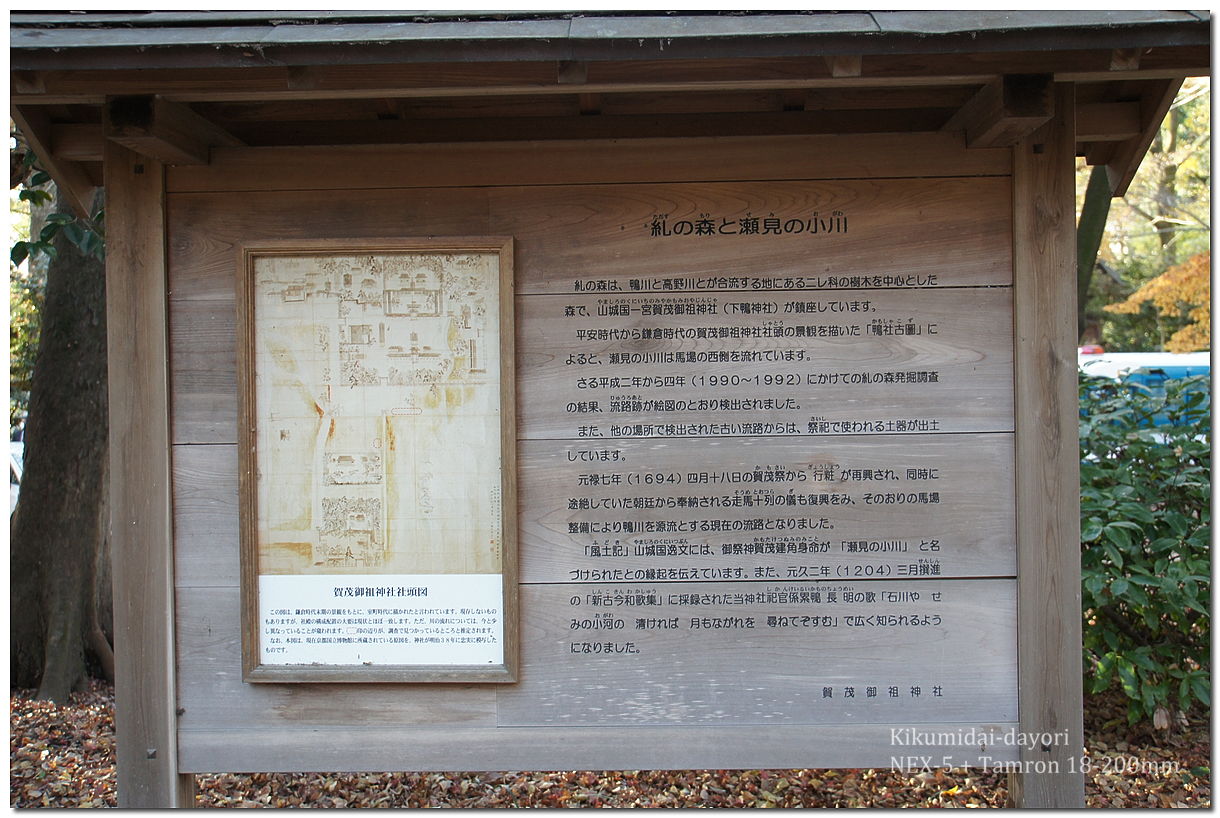 糺の森と瀬見の小川
糺の森は、鴨川と高野川とが合流する地にあるニレ科の樹木を中心とした
森で、山城国一宮賀茂御祖神社（下鴨神社）が鎮座しています。
平安時代から鎌倉時代の賀茂御祖神社社頭の景観を描いた「鴨社古圖」に
よると、瀬見の小川は馬場の西側を流れています。
さる平成二年から四年（１９９０～１９９２）にかけての糺の森発掘調査
の結果、流路跡が絵図のとおり検出されました。
また、他の場所で検出された古い流路からは、祭祀で使われる土器が出土
しています。
元禄七年（１６９４）四月十八日の賀茂祭から 行粧 が再興され、同時に
途絶していた朝廷から奉納される走馬十列の儀も復興をみ、そのおりの馬場
整備により鴨川を源流とする現在の流路となりました。
「風土記」山城国逸文には、御祭神賀茂建角身命が 「瀬見の小川」 と名
づけられたとの縁起を伝えています。また、元久二年（１２０４）三月撰進
の「新古今和歌集」に採録された当神社祀官係累鴨 長 明の歌「石川や せ
みの小河の 清ければ 月もながれを 尋ねてぞすむ」で広く知られるよう
になりました。
賀茂御祖神社
賀茂御祖神社社頭図
この図は、鎌倉時代末期の景観をもとに、室町時代に描かれたと言われています。現存しないもの
もありますが、社殿の構成配置の大要は現状とほぼ一致します。ただ、川の流れについては、今と少
し異なっていることが窺われます。 印の辺りが、調査で見つかっているところと推定されます。
なお、本図は、現在京都国立博物館に所蔵されている原図を、神社が明治３８年に忠実に模写した
ものです。
Kikumidai-dayori
NEX-5 + Tamron 18-200mm